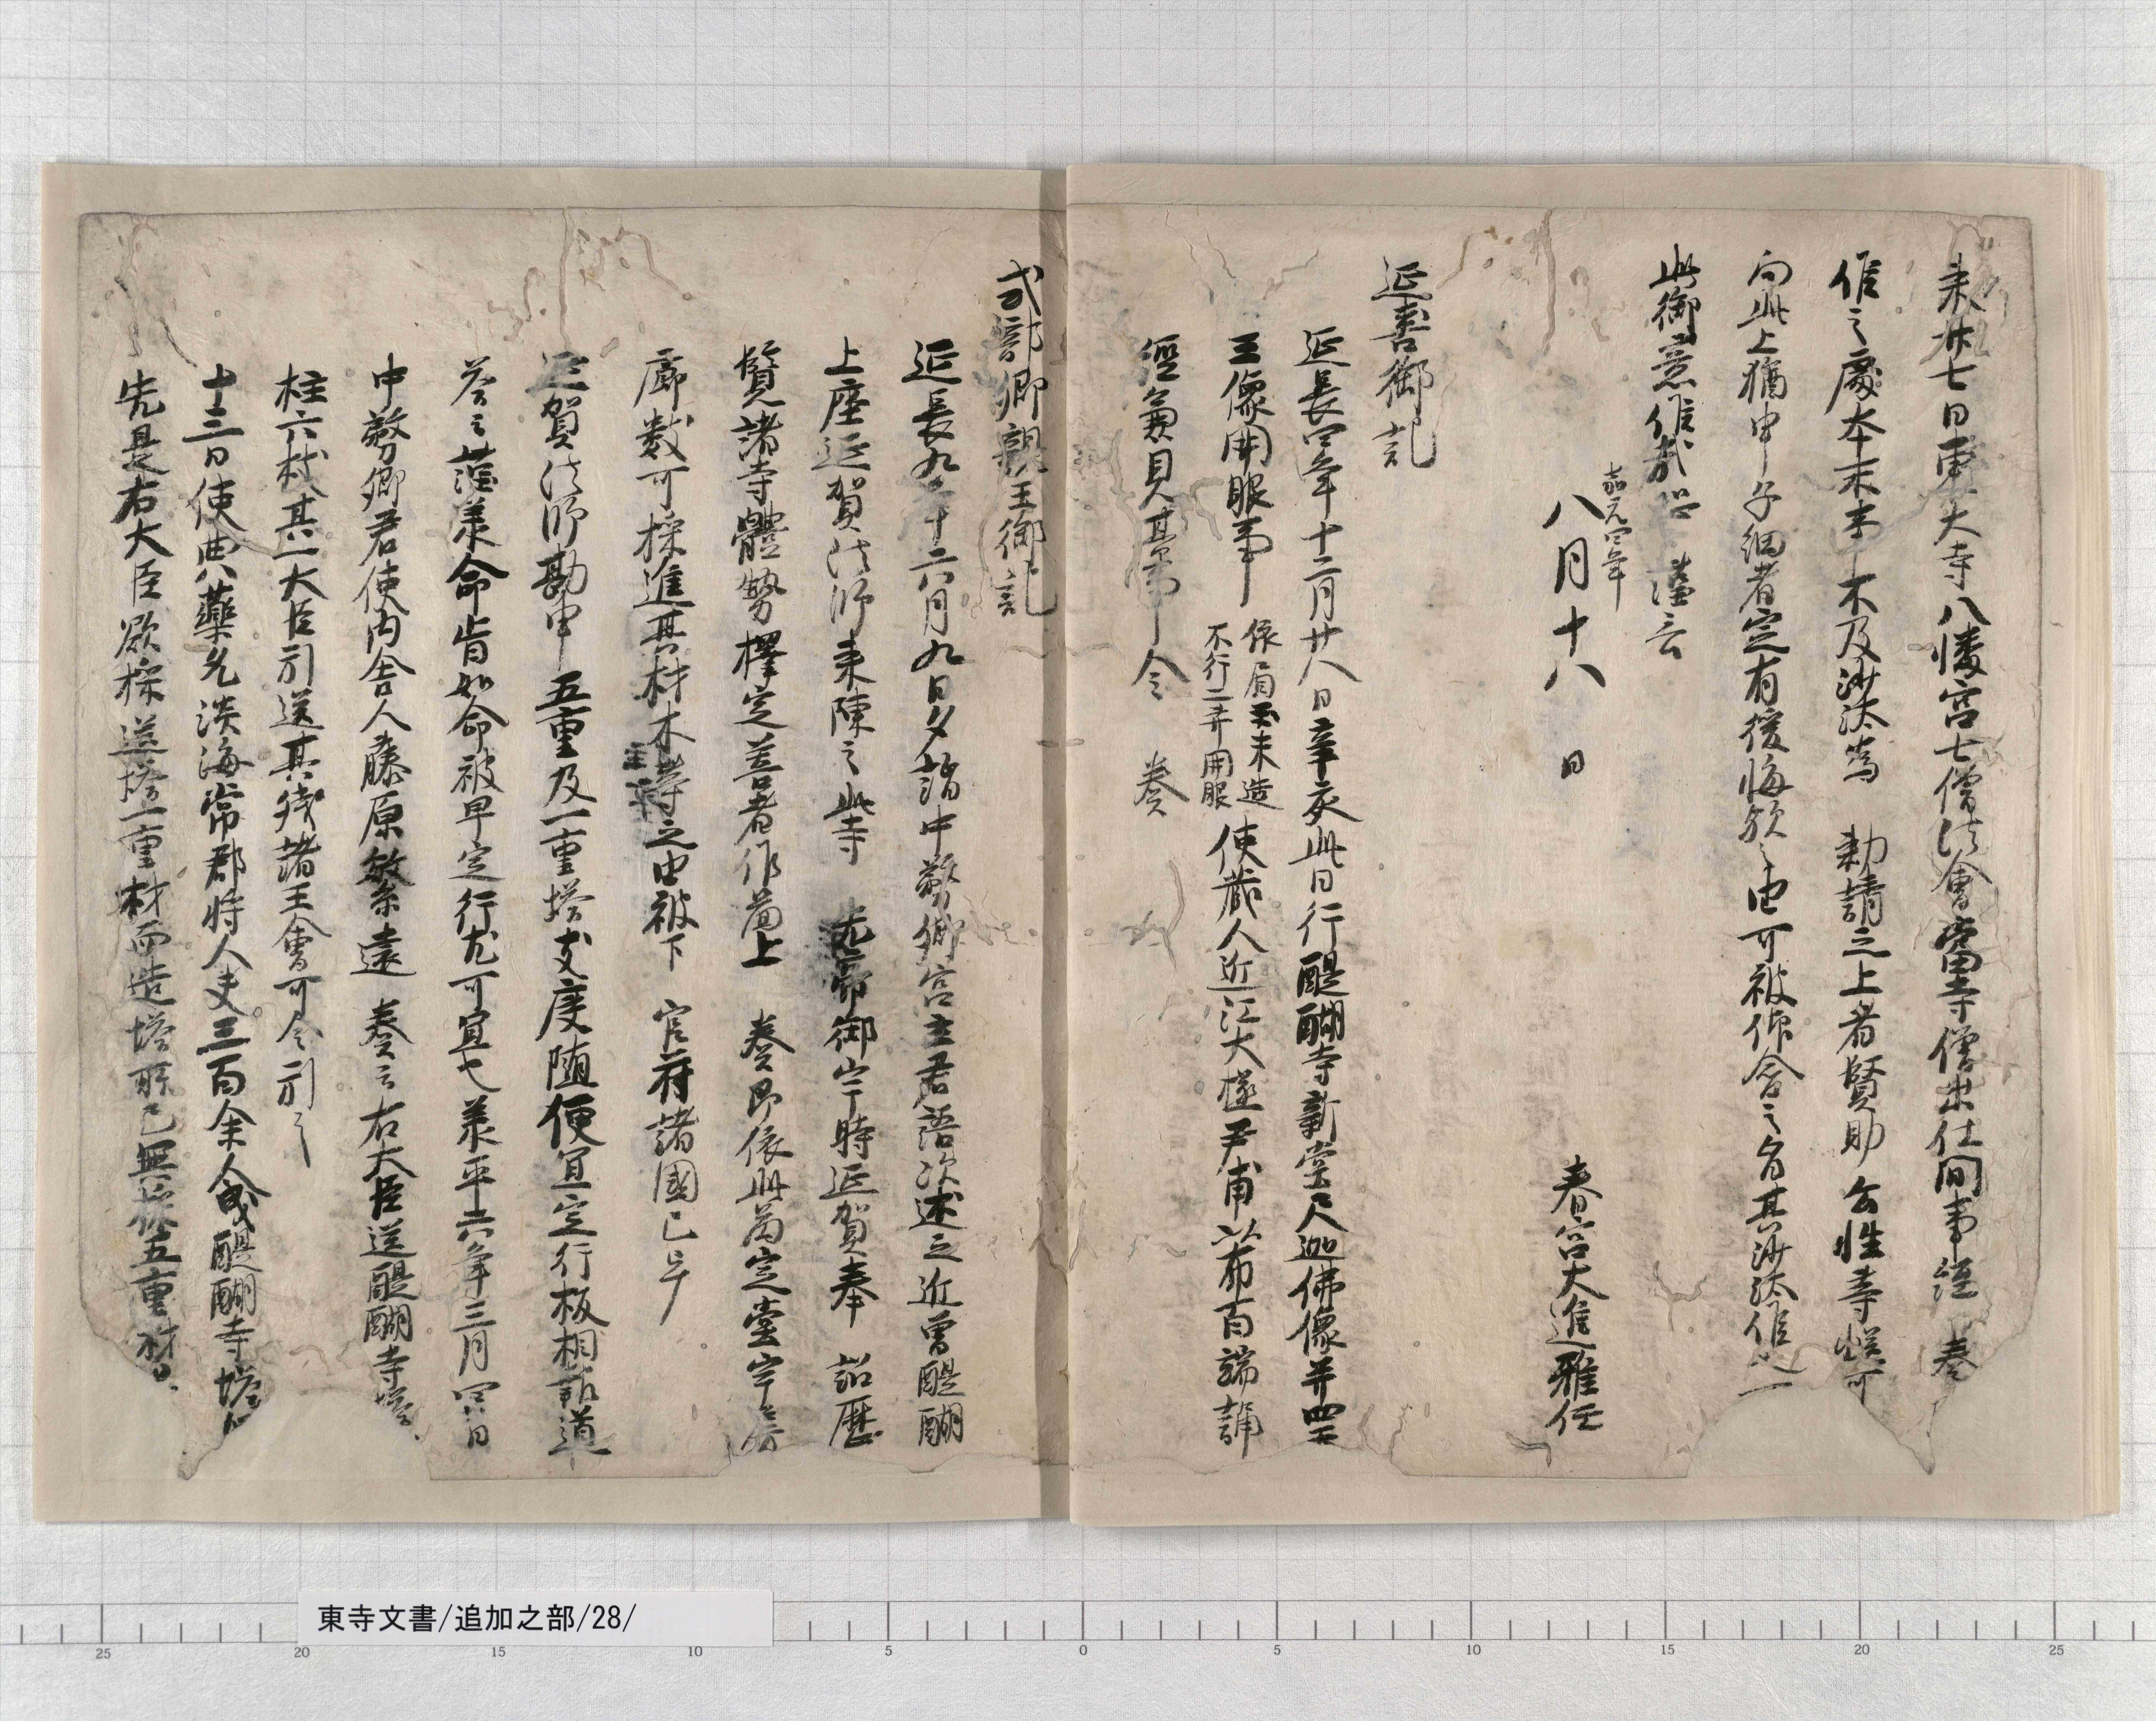 来廿七日東大寺八幡宮七僧法會當寺僧出仕間事経 奏
候之處本末事不及沙汰為 勅請之上者賢助 公性等
向此上猶申子細者定有後悔欤之由可被仰含之旨其沙汰候也
此御意候哉恐々謹言
嘉元四年
八月十八日 春宮大進雅任
延喜御記
延長四年十二月廿八日辛亥此日行醍醐寺新堂尺迦佛像并四天
王像開眼事
依眉玉未造
不行二井開眼
使蔵人近江大掾尹甫以布百端誦
経兼貝基事 令 奏
式部卿親王御記
延長九年十二六月九日夕詣中務卿宮主君語次述之近曽醍醐
上座延賀法师来陳之此寺 先帝御宇時延賀奉 詔歴
覧諸寺體勢擇定善者作啚上 奏即依此啚定堂宇房
廊数可採進其材木等之由被下 官符諸國已了
延賀法师勘申五重及一重塔支度随便宜定行板相語道
答之謹承命皆如命被早定行尤可宜也承平六年三月四日
中務卿君使内舎人藤原敏遠 奏云右大臣送醍醐寺塔
柱六枝其一大臣引送其残諸王會可令引之
十三日使典藥允淡海常郡将人夫三百余人曳醍醐寺塔
先是右大臣欲採送塔一重材而造塔所已無採五重材
東寺文書/追加之部/28/
25 20 15 10 5 0 5 10 15 20 25